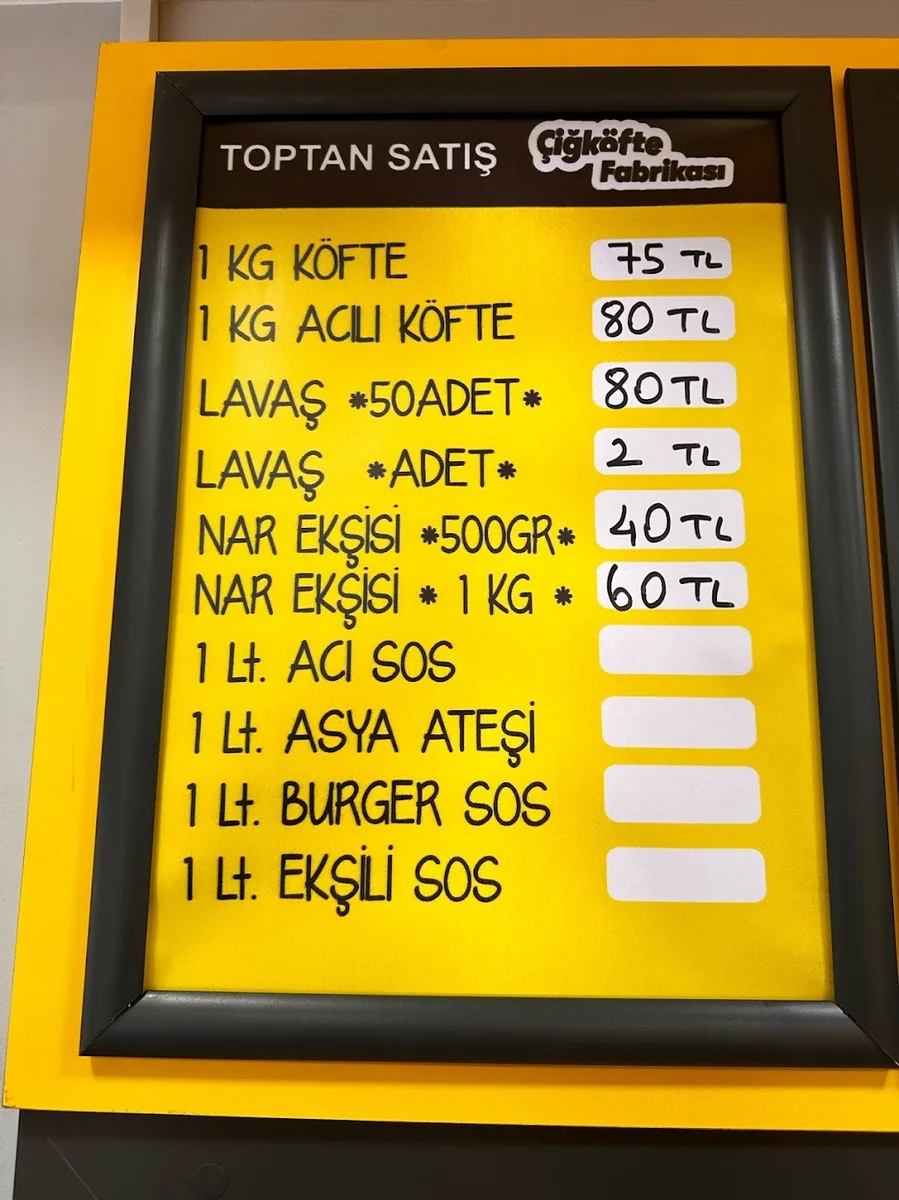 TOPTAN SATIŞ
Çiğköfte
Fabrikası
1 KG KÖFTE 75 TL
1 KG ACILI KÖFTE 80 TL
LAVAŞ *50ADET* 80 TL
LAVAŞ *ADET* 2 TL
NAR EKŞİSİ *500GR* 40 TL
NAR EKŞİSİ * 1 KG * 60 TL
1 Lt. ACI SOS
1 Lt. ASYA ATEŞİ
1 Lt. BURGER SOS
1 Lt. EKŞİLİ SOS